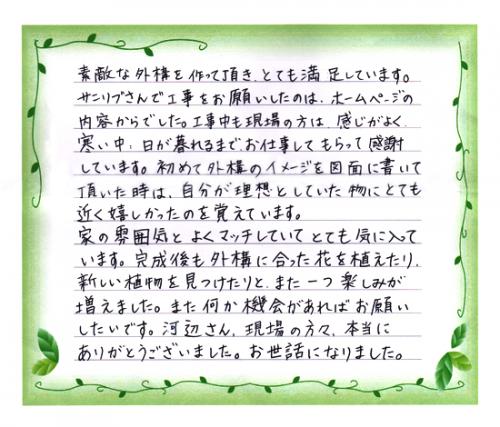 素敵な外構を作って頂き、とても満足しています。
サンリブさんで工事をお願いしたのは、ホームページの
内容からでした。工事中も現場の方は、感じがよく、
寒い中、日が暮れるまでお仕事してもらって感謝
しています。初めて外構のイメージを図面に書いて
頂いた時は、自分が理想としていた物にとても
近く嬉しかったのを覚えています。
家の雰囲気とよくマッチしていてとても気に入って
います。完成後も外構に合った花を植えたり、
新しい植物を見つけたりと、また一つ楽しみが
増えました。また何か機会があればお願い
したいです。河辺さん、現場の方々、本当に
ありがとうございました。お世話になりました。